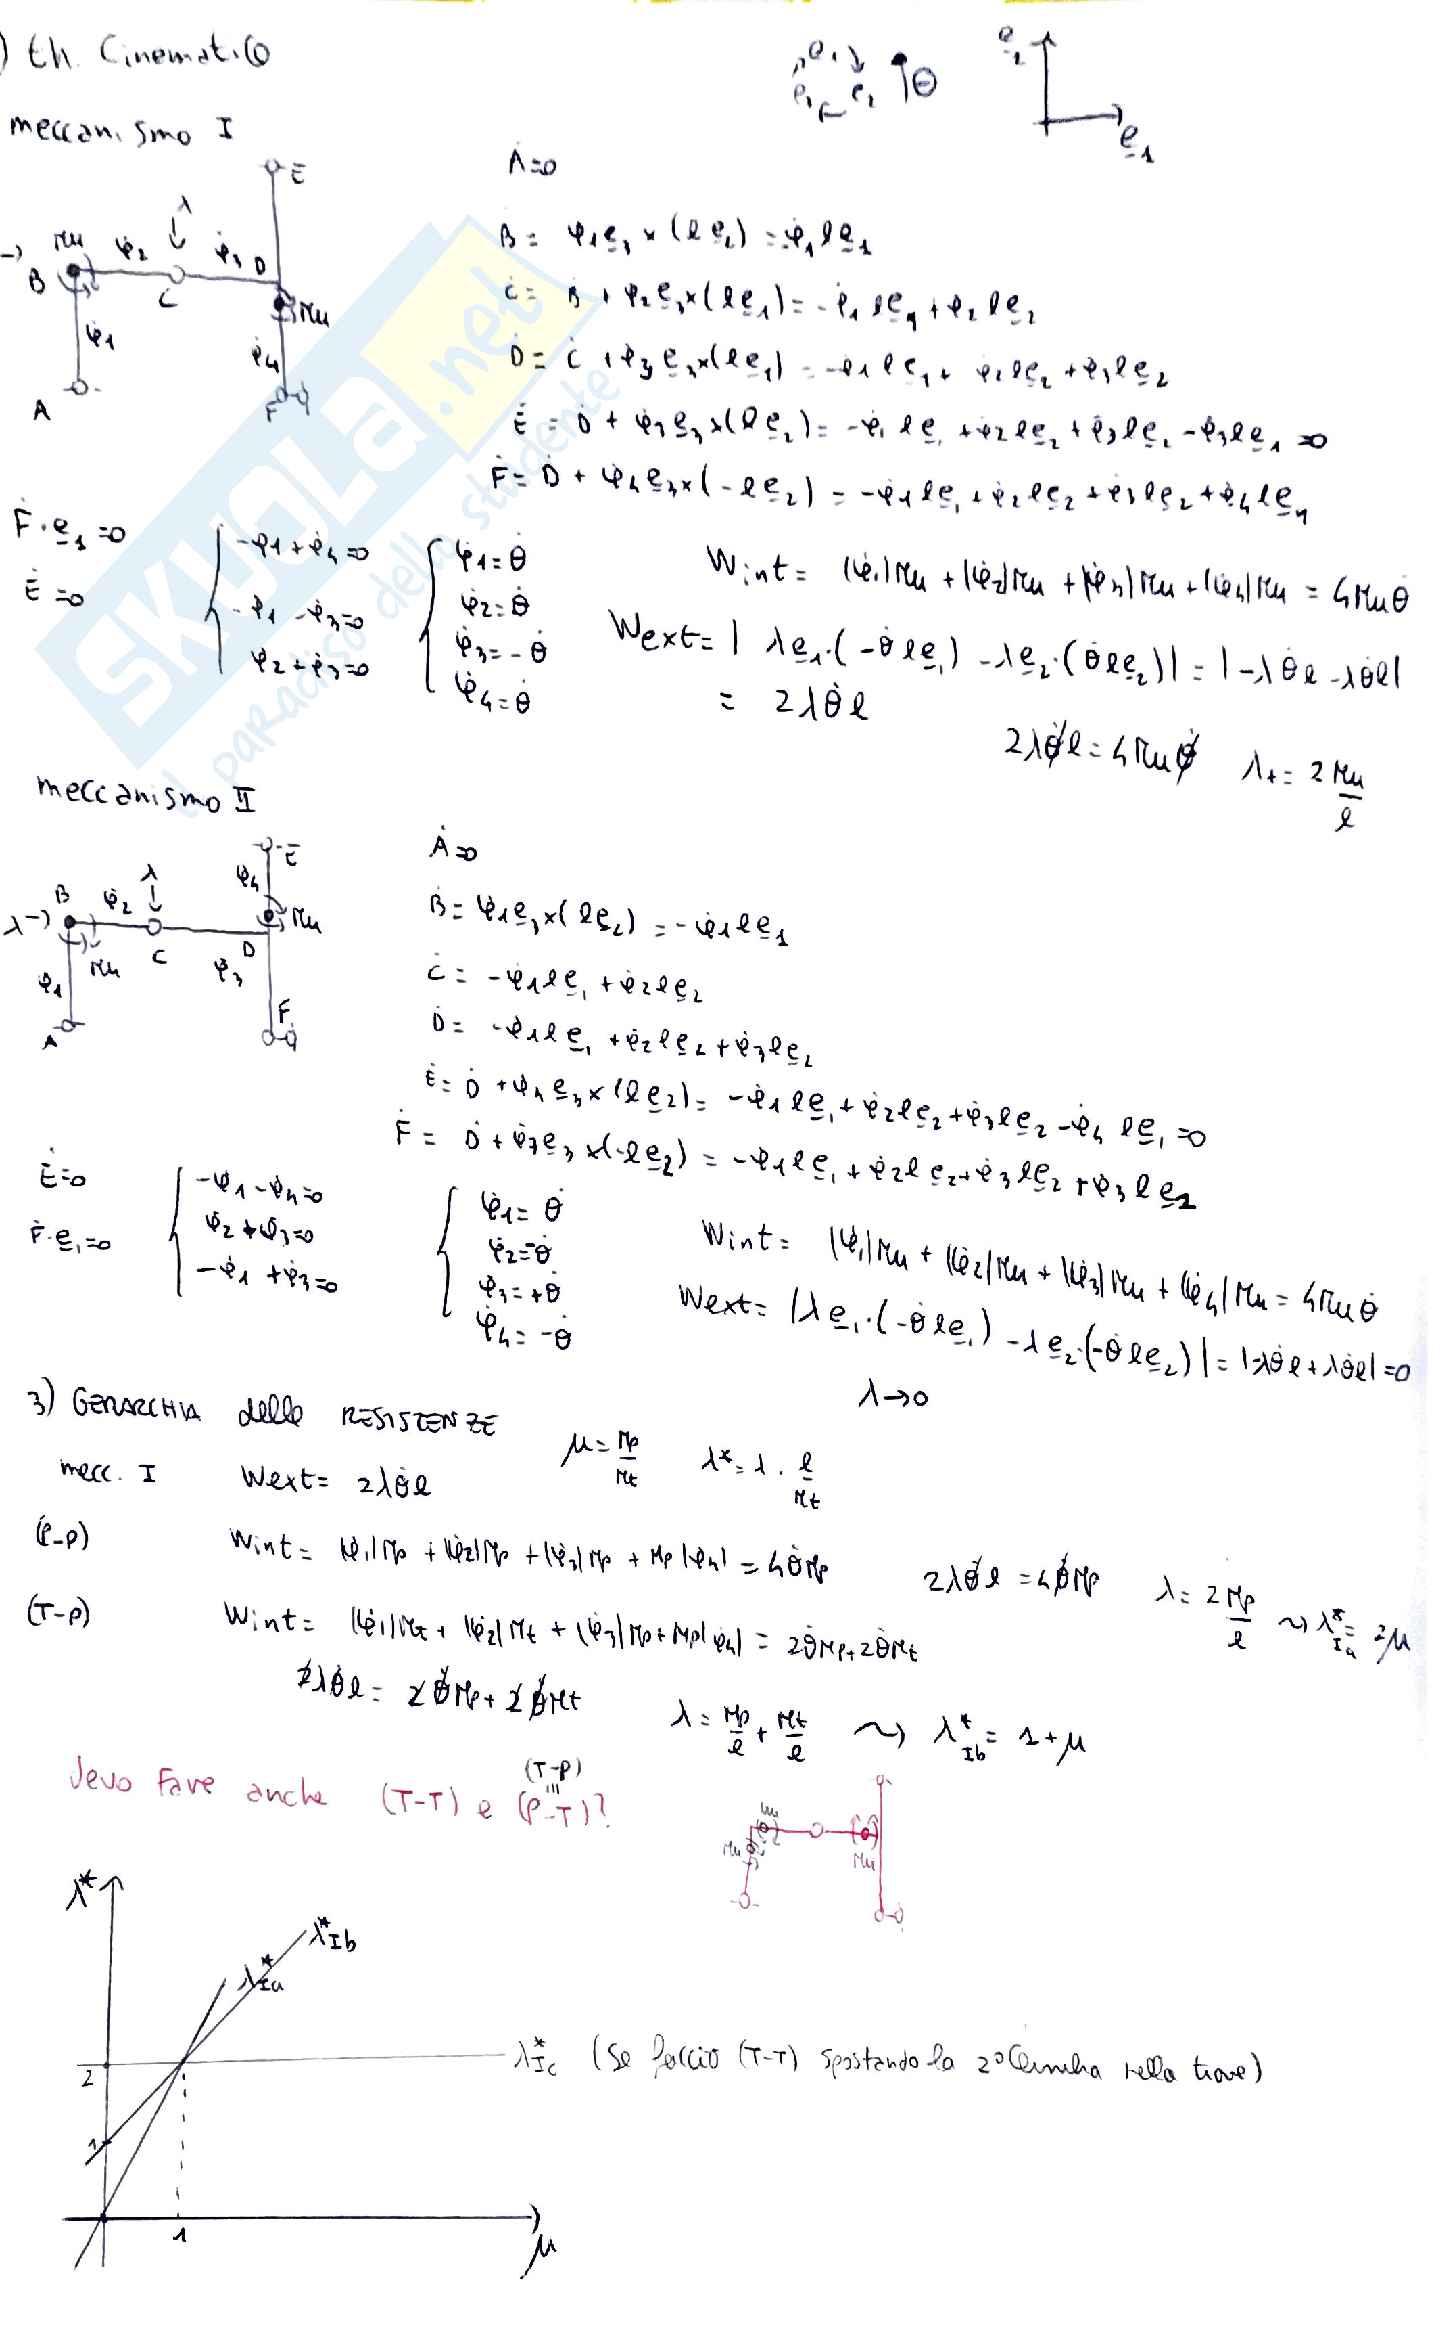 ) th. Cinematico
e1 e2 e3 θ
e2
e1
meccanismo I
E
λ
Mu φ̇2 φ̇3 D
B C Mu
φ̇1 φ̇4
A F
Ȧ=0
Ḃ= φ̇1e3×(le2)=-φ̇1le1
Ċ= Ḃ + φ̇2e3×(le1)=-φ̇1le1+φ̇2le2
Ḋ= Ċ + φ̇3e3×(le1)=-φ̇1le1+φ̇2le2+φ̇3le2
Ė= Ḋ + φ̇3e3×(le2)=-φ̇1le1+φ̇2le2+φ̇3le2-φ̇3le1=0
Ḟ= Ḋ + φ̇4e3×(-le2)=-φ̇1le1+φ̇2le2+φ̇3le2+φ̇4le1
Ḟ·e1=0
Ė=0
-φ̇1+φ̇4=0
-φ̇1-φ̇3=0
φ̇2+φ̇3=0
φ̇1=θ̇
φ̇2=θ̇
φ̇3=-θ̇
φ̇4=θ̇
Wint= |φ̇1|Mu+|φ̇2|Mu+|φ̇3|Mu+|φ̇4|Mu=4Muθ̇
Wext=|λe1·(-θ̇le1)-λe2·(θ̇le2)|=|-λθ̇l-λθ̇l|
= 2λθ̇l
2λθ̇l=4Muθ̇ λ+=2Mu/l
SKUOLA.net
il paradiso dello studente
meccanismo II
E
λ φ̇4
B φ̇2 Mu
λ→ C D
Mu φ̇3
φ̇1
A F
Ȧ=0
Ḃ=φ̇1e3×(le2)=-φ̇1le1
Ċ=-φ̇1le1+φ̇2le2
Ḋ=-φ̇1le1+φ̇2le2+φ̇3le2
Ė=Ḋ+φ̇4e3×(le2)=-φ̇1le1+φ̇2le2+φ̇3le2-φ̇4le1=0
Ḟ=Ḋ+φ̇3e3×(-le2)=-φ̇1le1+φ̇2le2+φ̇3le2+φ̇3le2
Ė=0
Ḟ·e1=0
-φ̇1-φ̇4=0
φ̇2+φ̇3=0
-φ̇1+φ̇3=0
φ̇1=θ̇
φ̇2=-θ̇
φ̇3=+θ̇
φ̇4=-θ̇
Wint= |φ̇1|Mu+|φ̇2|Mu+|φ̇3|Mu+|φ̇4|Mu=4Muθ̇
Wext=|λe1·(-θ̇le1)-λe2·(-θ̇le2)|=|-λθ̇l+λθ̇l|=0
λ→0
3) GERARCHIA delle RESISTENZE
μ=Mp/Mt λ*=λ·l/Mt
mecc. I Wext=2λθ̇l
(P-P) Wint=|φ̇1|Mp+|φ̇2|Mp+|φ̇3|Mp+Mp|φ̇4|=4θ̇Mp 2λθ̇l=4θ̇Mp λ=2Mp/l ~> λ*Ia=2μ
(T-P) Wint=|φ̇1|Mt+|φ̇2|Mt+|φ̇3|Mp+Mp|φ̇4|=2θ̇Mp+2θ̇Mt
2λθ̇l=2θ̇Mp+2θ̇Mt λ=Mp/l+Mt/l ~> λ*Ib=1+μ
(T-P)
devo fare anche (T-T) e (P-T)?
Mu Mu Mu
λ*
λ*Ib
λ*Ia
2 λ*Ic (Se faccio (T-T) spostando la 2° cerniera nella trave)
1
1
μ